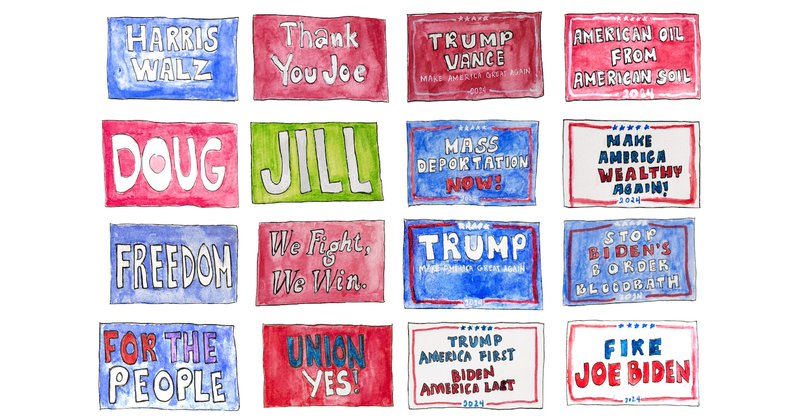 HARRIS
WALZ
Thank
You Joe
TRUMP
VANCE
MAKE AMERICA GREAT AGAIN
2024
AMERICAN OIL
FROM
AMERICAN SOIL
2024
DOUG
JILL
MASS
DEPORTATION
NOW!
2024
MAKE
AMERICA
WEALTHY
AGAIN!
2024
FREEDOM
We Fight,
We Win.
TRUMP
MAKE AMERICA GREAT AGAIN
2024
STOP
BIDEN'S
BORDER
BLOODBATH
2024
FOR THE
PEOPLE
UNION
YES!
TRUMP
AMERICA FIRST
BIDEN
AMERICA LAST
2024
FIRE
JOE BIDEN
2024